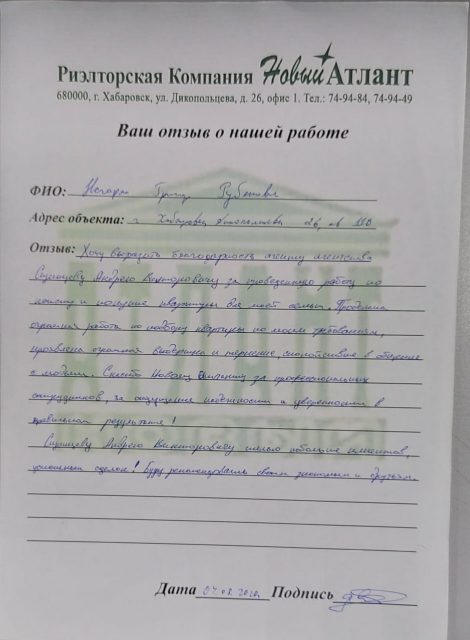 Риэлторская Компания Новый Атлант
680000, г. Хабаровск, ул. Дикопольцева, д. 26, офис 1. Тел.: 74-94-84, 74-94-49
Ваш отзыв о нашей работе
ФИО:
Адрес объекта: г. Хабаровск 26, кв
Отзыв: Хочу выразить благодарность агенту агентства
Андрею Викторовичу за проведенную работу по
поиску и покупке квартиры для моей семьи. Проделана
огромная работа по подбору квартиры по моим требованиям,
проявлена огромная выдержка и терпение, спокойствие в общении
с людьми. Спасибо за профессиональных
сотрудников, за ощущение надежности и уверенности в
правильном результате!
Андрею Викторовичу желаю побольше клиентов,
успешных сделок! Буду рекомендовать своим знакомым и друзьям.
Дата Подпись